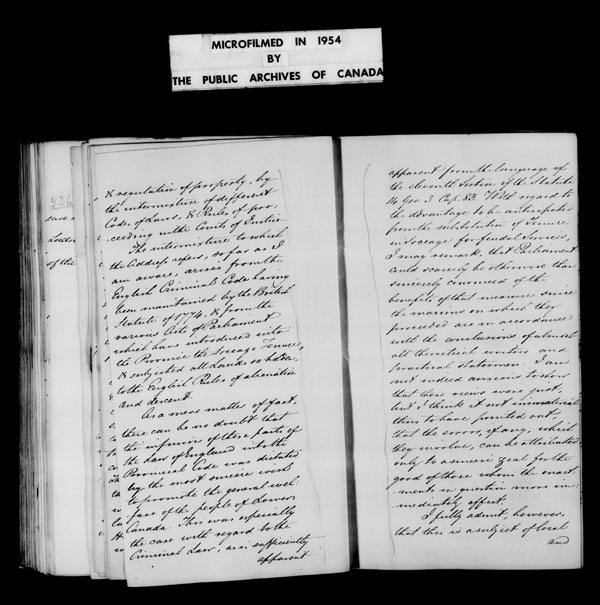 MICROFILMED IN 1954
BY
THE PUBLIC ARCHIVES OF CANADA
& regulation of property, by
the intermixture of different
Codes of Laws, & Rules of pro-
ceeding in the Courts of Justice.
The intermixture to which
the Address refers, so far as I
am aware, arises from the
English Criminal Code having
been maintained by the British
Statute of 1774, & from the
various Acts of Parliament
which have introduced into
the Province the Soccage Tenure,
& subjected all Lands so holden,
to the English Rules of alienation
and descent.
As a mere matter of fact,
there can be no doubt that
the infusion of these parts of
the Law of England into the
Provincial Code was dictated
by the most sincere wish
to promote the general wel-
fare of the people of Lower
Canada. This was especially
the case with regard to the
Criminal Law, as is sufficiently
apparent
apparent from the language of
the eleventh Section of the Statute
14 Geo: 3 Cap. 83. With regard to
the advantage to be anticipated
from the substitution of Tenure
in Soccage for feudal Services,
I may remark, that Parliament
could scarcely be otherwise than
sincerely convinced of the
benefits of that measure since
the maxims on which they
proceeded are in accordance
with the conclusions of almost
all theoretical writers and
practical Statesmen. I am
not indeed anxious to show
that these views were just,
but I think it not immaterial
thus to have pointed out,
that the errors, if any, which
they involve, can be attributed
only to a sincere zeal for the
good of those whom the enact-
ments in question more im-
mediately affect.
I fully admit, however,
that this is a subject of local
and